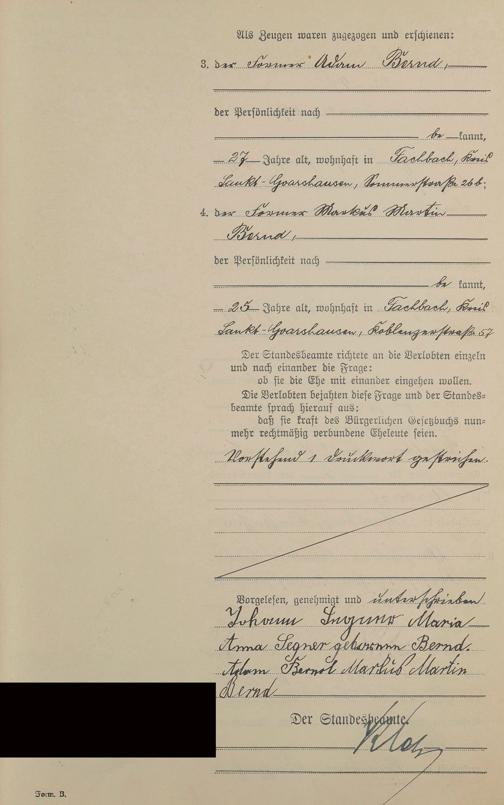 Als Zeugen waren zugezogen und erschienen:
3. der Former Adam Bernd,
der Persönlichkeit nach
be kannt,
27 Jahre alt, wohnhaft in Fachbach, Kreis
Sankt-Goarshausen, Sommerstraße 26b.
4. der Former Markus Martin
Bernd,
der Persönlichkeit nach
be kannt,
25 Jahre alt, wohnhaft in Fachbach, Kreis
Sankt-Goarshausen, Koblenzerstraße 57
Der Standesbeamte richtete an die Verlobten einzeln
und nach einander die Frage:
ob sie die Ehe mit einander eingehen wollen.
Die Verlobten bejahten diese Frage und der Standes-
beamte sprach hierauf aus:
daß sie kraft des Bürgerlichen Gesetzbuchs nun-
mehr rechtmäßig verbundene Eheleute seien.
Vorstehend 1 Druckwort gestrichen.
Vorgelesen, genehmigt und unterschrieben
Johann Maria
Anna Segner geborenen Bernd.
Adam Bernd Markus Martin
Bernd
Der Standesbeamte.
Form. B.